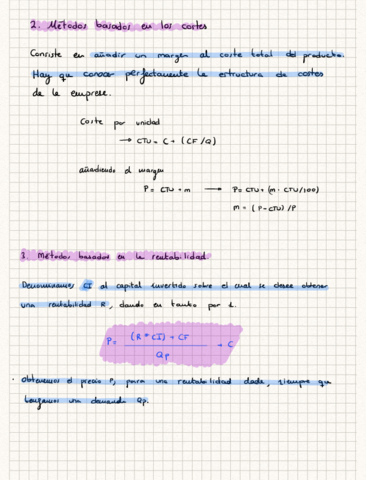 2. Métodos basados en los costes
Consiste en añadir un margen al coste total del producto.
Hay que conocer perfectamente la estructura de costes
de la empresa.
Coste por unidad
→ CTU = C + (CF/Q)
añadiendo el margen
P = CTU + m → P = CTU + (m · CTU/100)
m = (P - CTU) / P
3. Métodos basados en la rentabilidad
Denominamos CI al capital invertido sobre el cual se desea obtener
una rentabilidad R, dando en tanto por 1.
P = (R * CI) + CF
Qp + C
· Obtenemos el precio P, para una rentabilidad dada, siempre que
tengamos una demanda Qp.